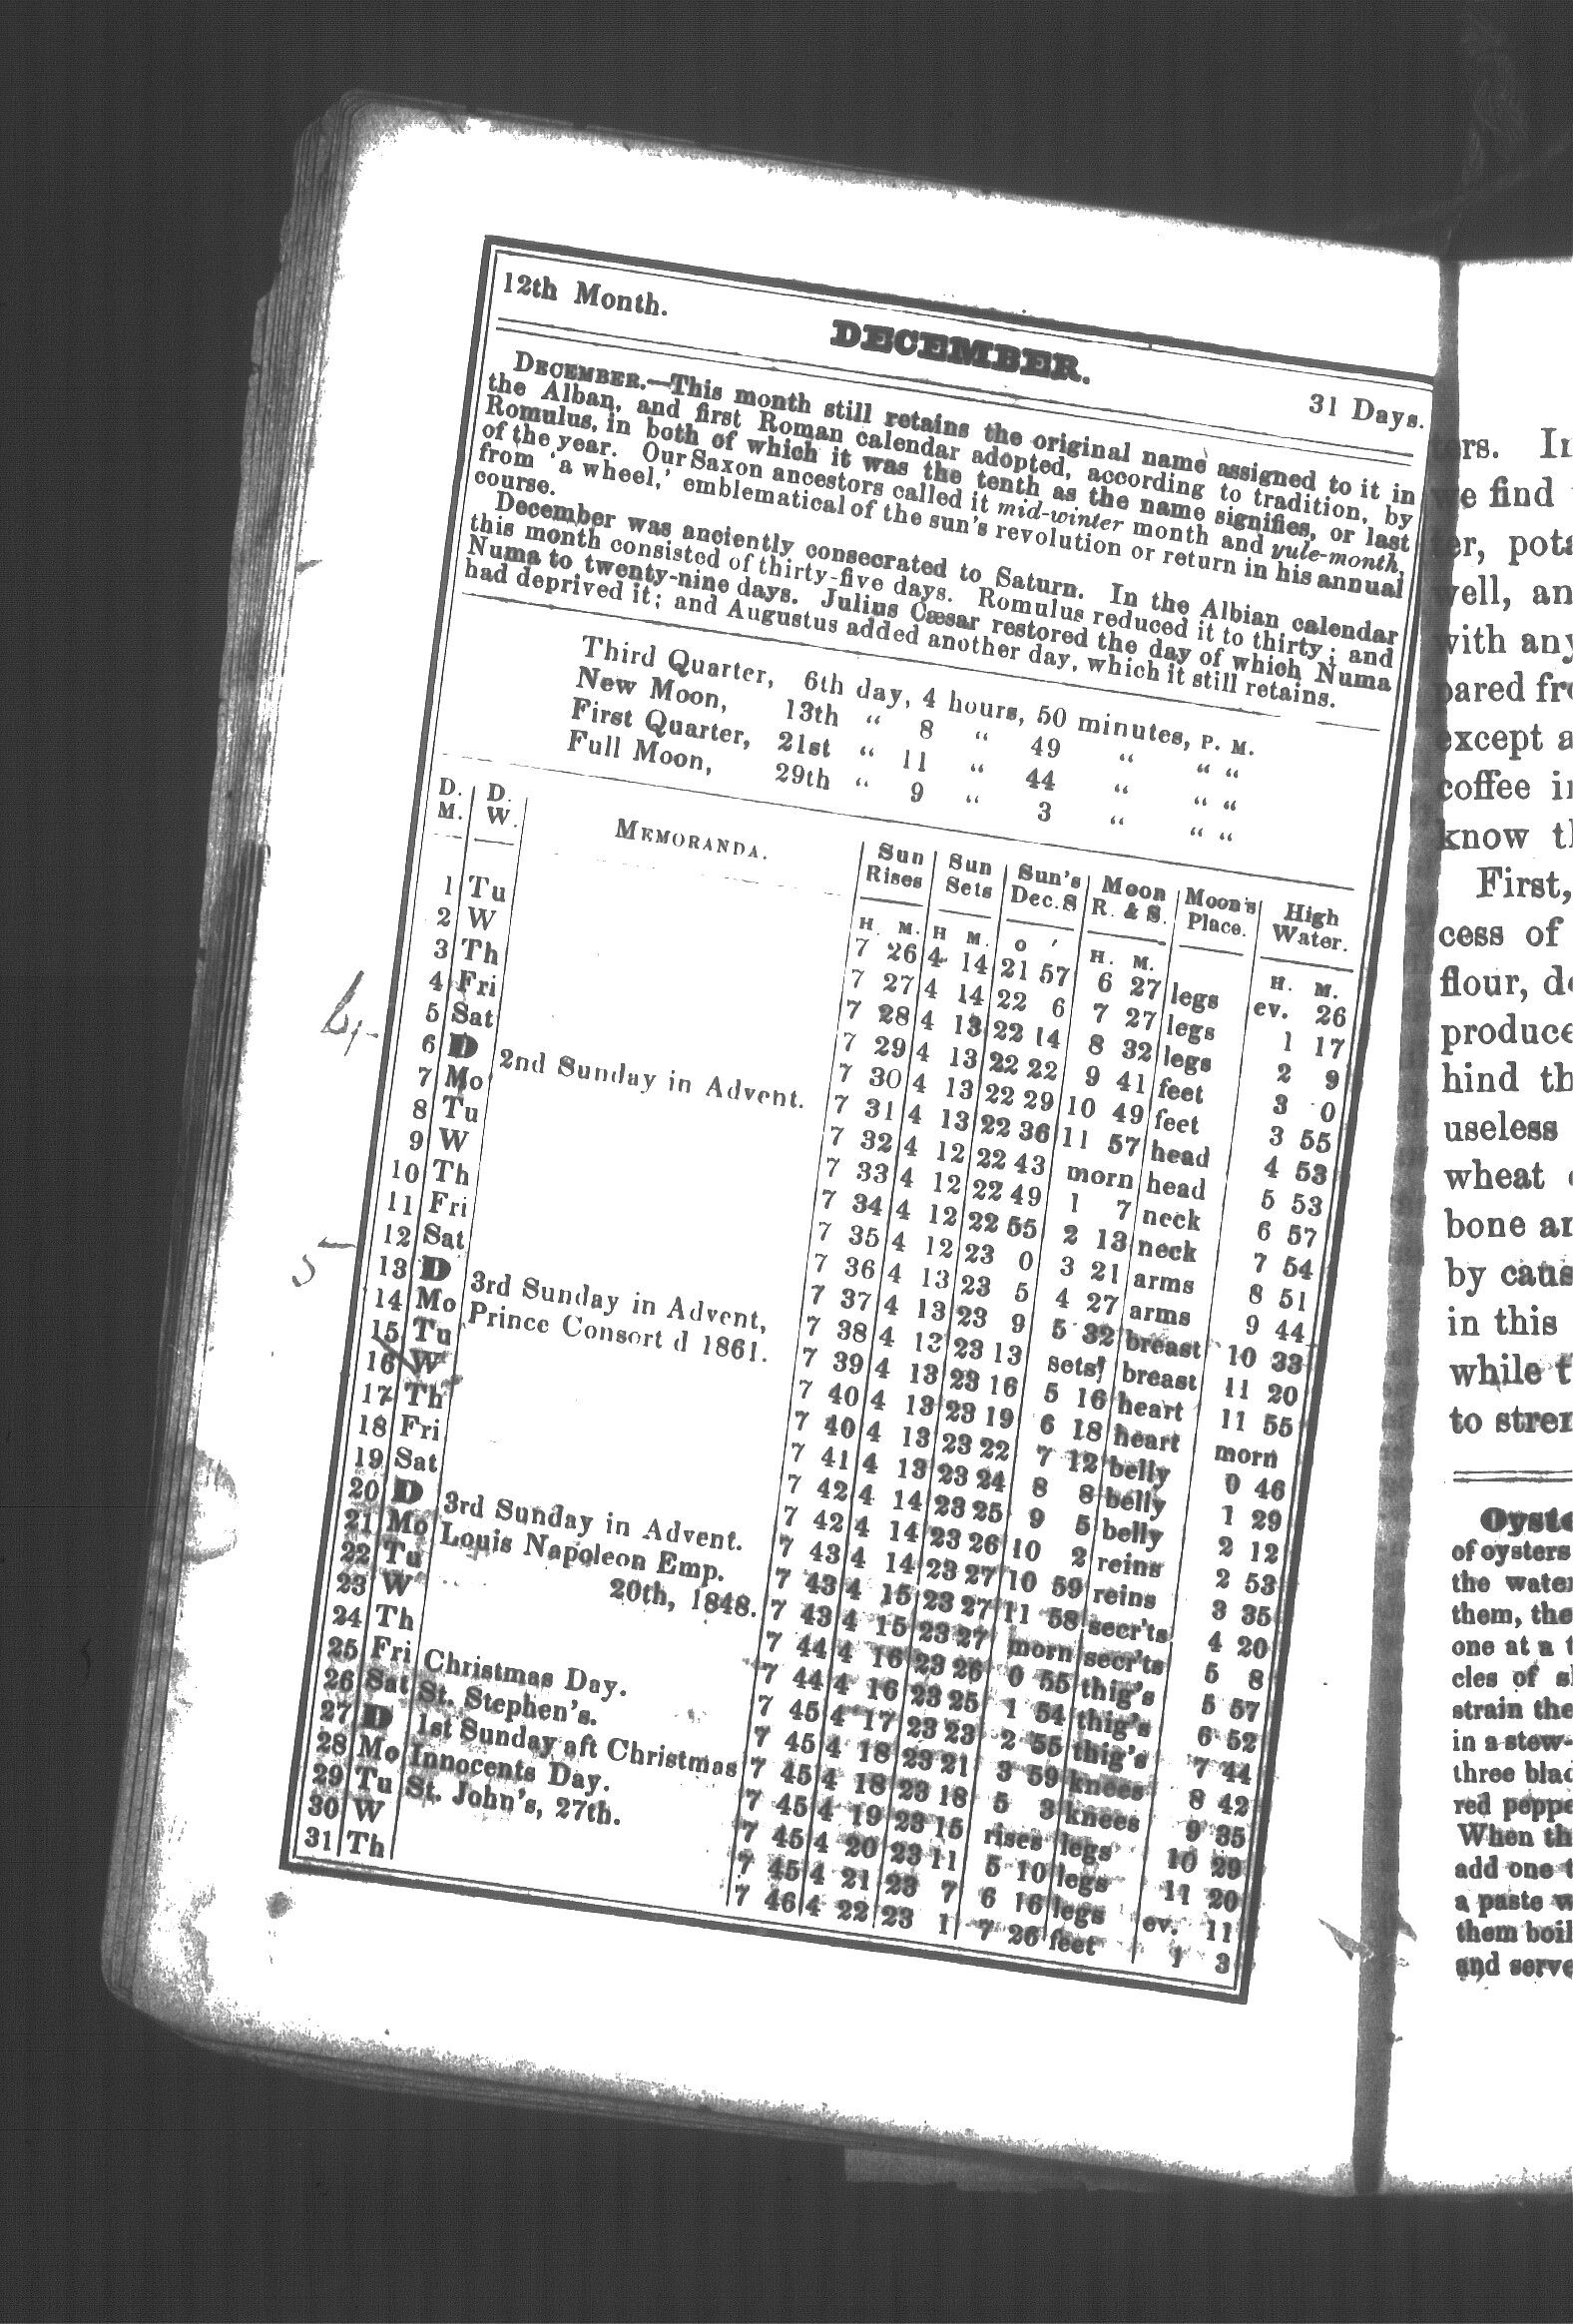 12th Month.
DECEMBER.
31 Days.
DECEMBER.—This month still retains the original name assigned to it in
the Alban, and first Roman calendar adopted, according to tradition, by
Romulus, in both of which it was the tenth as the name signifies, or last
of the year. Our Saxon ancestors called it mid-winter month and yule-month,
from 'a wheel,' emblematical of the sun's revolution or return in his annual
course.
December was anciently consecrated to Saturn. In the Albian calendar
this month consisted of thirty-five days. Romulus reduced it to thirty; and
Numa to twenty-nine days. Julius Cæsar restored the day of which Numa
had deprived it; and Augustus added another day, which it still retains.
Third Quarter, 6th day, 4 hours, 50 minutes, P. M.
New Moon, 13th " 8 " 49 " " "
First Quarter, 21st " 11 " 44 " " "
Full Moon, 29th " 9 " 3 " " "
D. M. D. W. MEMORANDA. Sun Rises Sun Sets Sun's Dec. S Moon R. & S. Moon's Place. High Water.
H. M. H M. o ′ H. M. H. M.
1 Tu 7 26 4 14 21 57 6 27 legs ev. 26
2 W 7 27 4 14 22 6 7 27 legs 1 17
3 Th 7 28 4 13 22 14 8 32 legs 2 9
4 Fri 7 29 4 13 22 22 9 41 feet 3 0
5 Sat 7 30 4 13 22 29 10 49 feet 3 55
6 D 2nd Sunday in Advent. 7 31 4 13 22 36 11 57 head 4 53
7 Mo 7 32 4 12 22 43 morn head 5 53
8 Tu 7 33 4 12 22 49 1 7 neck 6 57
9 W 7 34 4 12 22 55 2 13 neck 7 54
10 Th 7 35 4 12 23 0 3 21 arms 8 51
11 Fri 7 36 4 13 23 5 4 27 arms 9 44
12 Sat 7 37 4 13 23 9 5 32 breast 10 33
13 D 3rd Sunday in Advent, 7 38 4 13 23 13 sets breast 11 20
14 Mo Prince Consort d 1861. 7 39 4 13 23 16 5 16 heart 11 55
15 Tu 7 40 4 13 23 19 6 18 heart morn
16 W 7 40 4 13 23 22 7 12 belly 0 46
17 Th 7 41 4 13 23 24 8 8 belly 1 29
18 Fri 7 42 4 14 23 25 9 5 belly 2 12
19 Sat 7 42 4 14 23 26 10 2 reins 2 53
20 D 3rd Sunday in Advent. 7 43 4 14 23 27 10 59 reins 3 35
21 Mo Louis Napoleon Emp. 7 43 4 15 23 27 11 58 secr'ts 4 20
22 Tu 20th, 1848. 7 43 4 15 23 27 morn secr'ts 5 8
23 W 7 44 4 16 23 26 0 55 thig's 5 57
24 Th 7 44 4 16 23 25 1 54 thig's 6 52
25 Fri Christmas Day. 7 45 4 17 23 23 2 55 thig's 7 44
26 Sat St. Stephen's. 7 45 4 18 23 21 3 59 knees 8 42
27 D 1st Sunday aft Christmas 7 45 4 18 23 18 5 3 knees 9 35
28 Mo Innocents Day. 7 45 4 19 23 15 rises legs 10 29
29 Tu St. John's, 27th. 7 45 4 20 23 11 5 10 legs 11 20
30 W 7 45 4 21 23 7 6 16 legs ev. 11
31 Th 7 46 4 22 23 1 7 26 feet 1 3
we find
well, an
with any
except a
coffee
know
First,
cess of
flour,
useless
wheat
in this
while
Oyste
of oysters
the water
them, the
one at a
cles of
strain the
in a stew-
three
red
When
add one
a paste
them boil
and serve